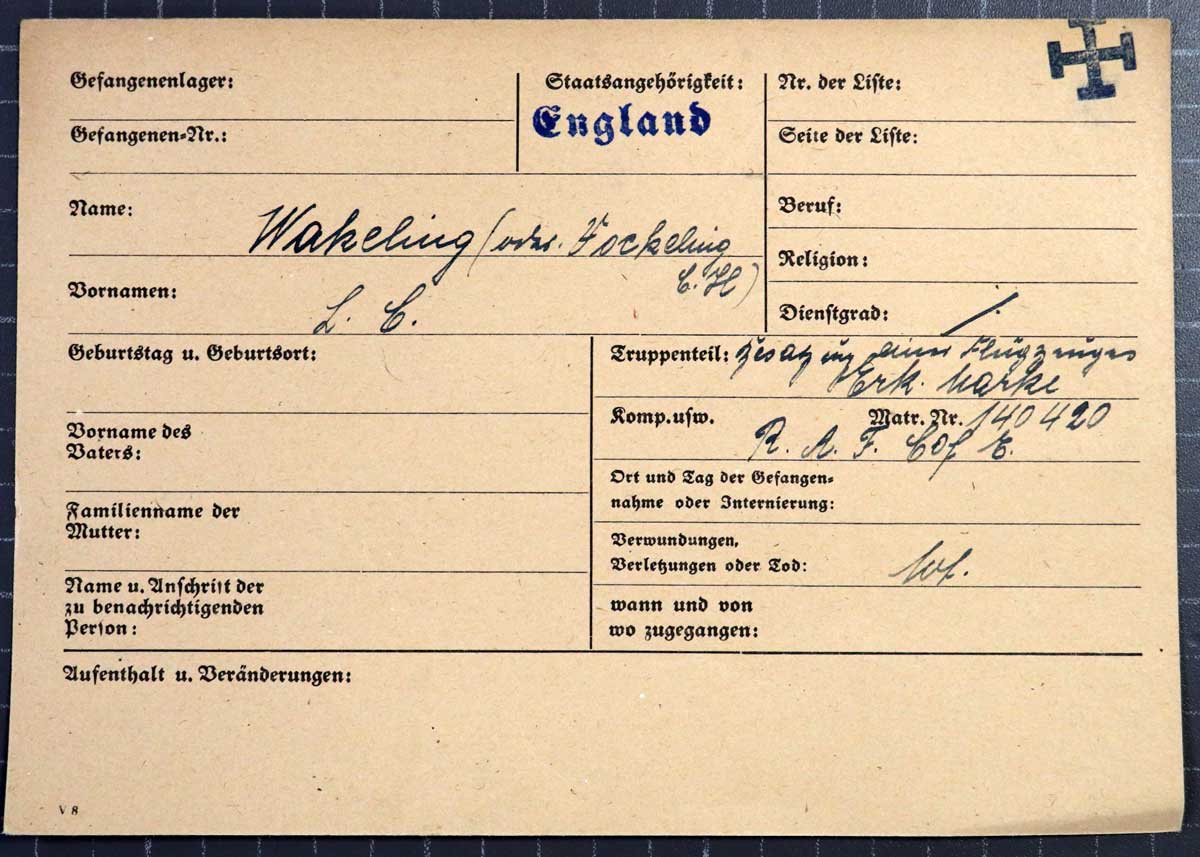 Gefangenenlager:
Gefangenen-Nr.:
Staatsangehörigkeit:
England
Nr. der Liste:
Seite der Liste:
Name: Wakeling (oder. Fockeling
C. H)
Vornamen: L. C.
Beruf:
Religion:
Dienstgrad: /.
Geburtstag u. Geburtsort:
Vorname des
Vaters:
Familienname der
Mutter:
Name u. Anschrift der
zu benachrichtigenden
Person:
Truppenteil: einer Flugzeuges
Erk. Marke
Komp.usw. Matr. Nr. 140 420
R. A. F. C of E.
Ort und Tag der Gefangen-
nahme oder Internierung:
Verwundungen,
Verletzungen oder Tod:
wann und von
wo zugegangen:
Aufenthalt u. Veränderungen:
V 8